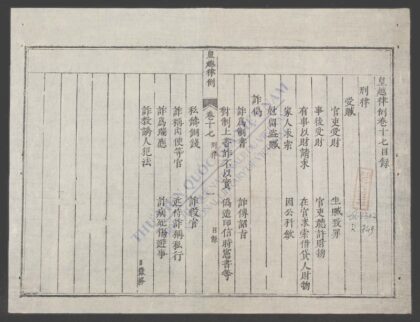 皇越律例卷十七目錄
刑律
受贓
官吏受財
坐贓致罪
事後受財
官吏聽許財物
有事以財請求
在官求索借貸人財物
家人求索
因公科歛
尅留盜贓
詐偽
詐為制書
詐傳詔旨
對制上書詐不以實
偽造印信時憲書等
皇越律例
卷十七
刑律
目錄
私鑄銅錢
詐假官
詐稱内使等官
近侍詐稱私行
詐為瑞應
詐病死傷避事
詐教誘人犯法
THƯ VIỆN QUỐC GIA VIỆT NAM